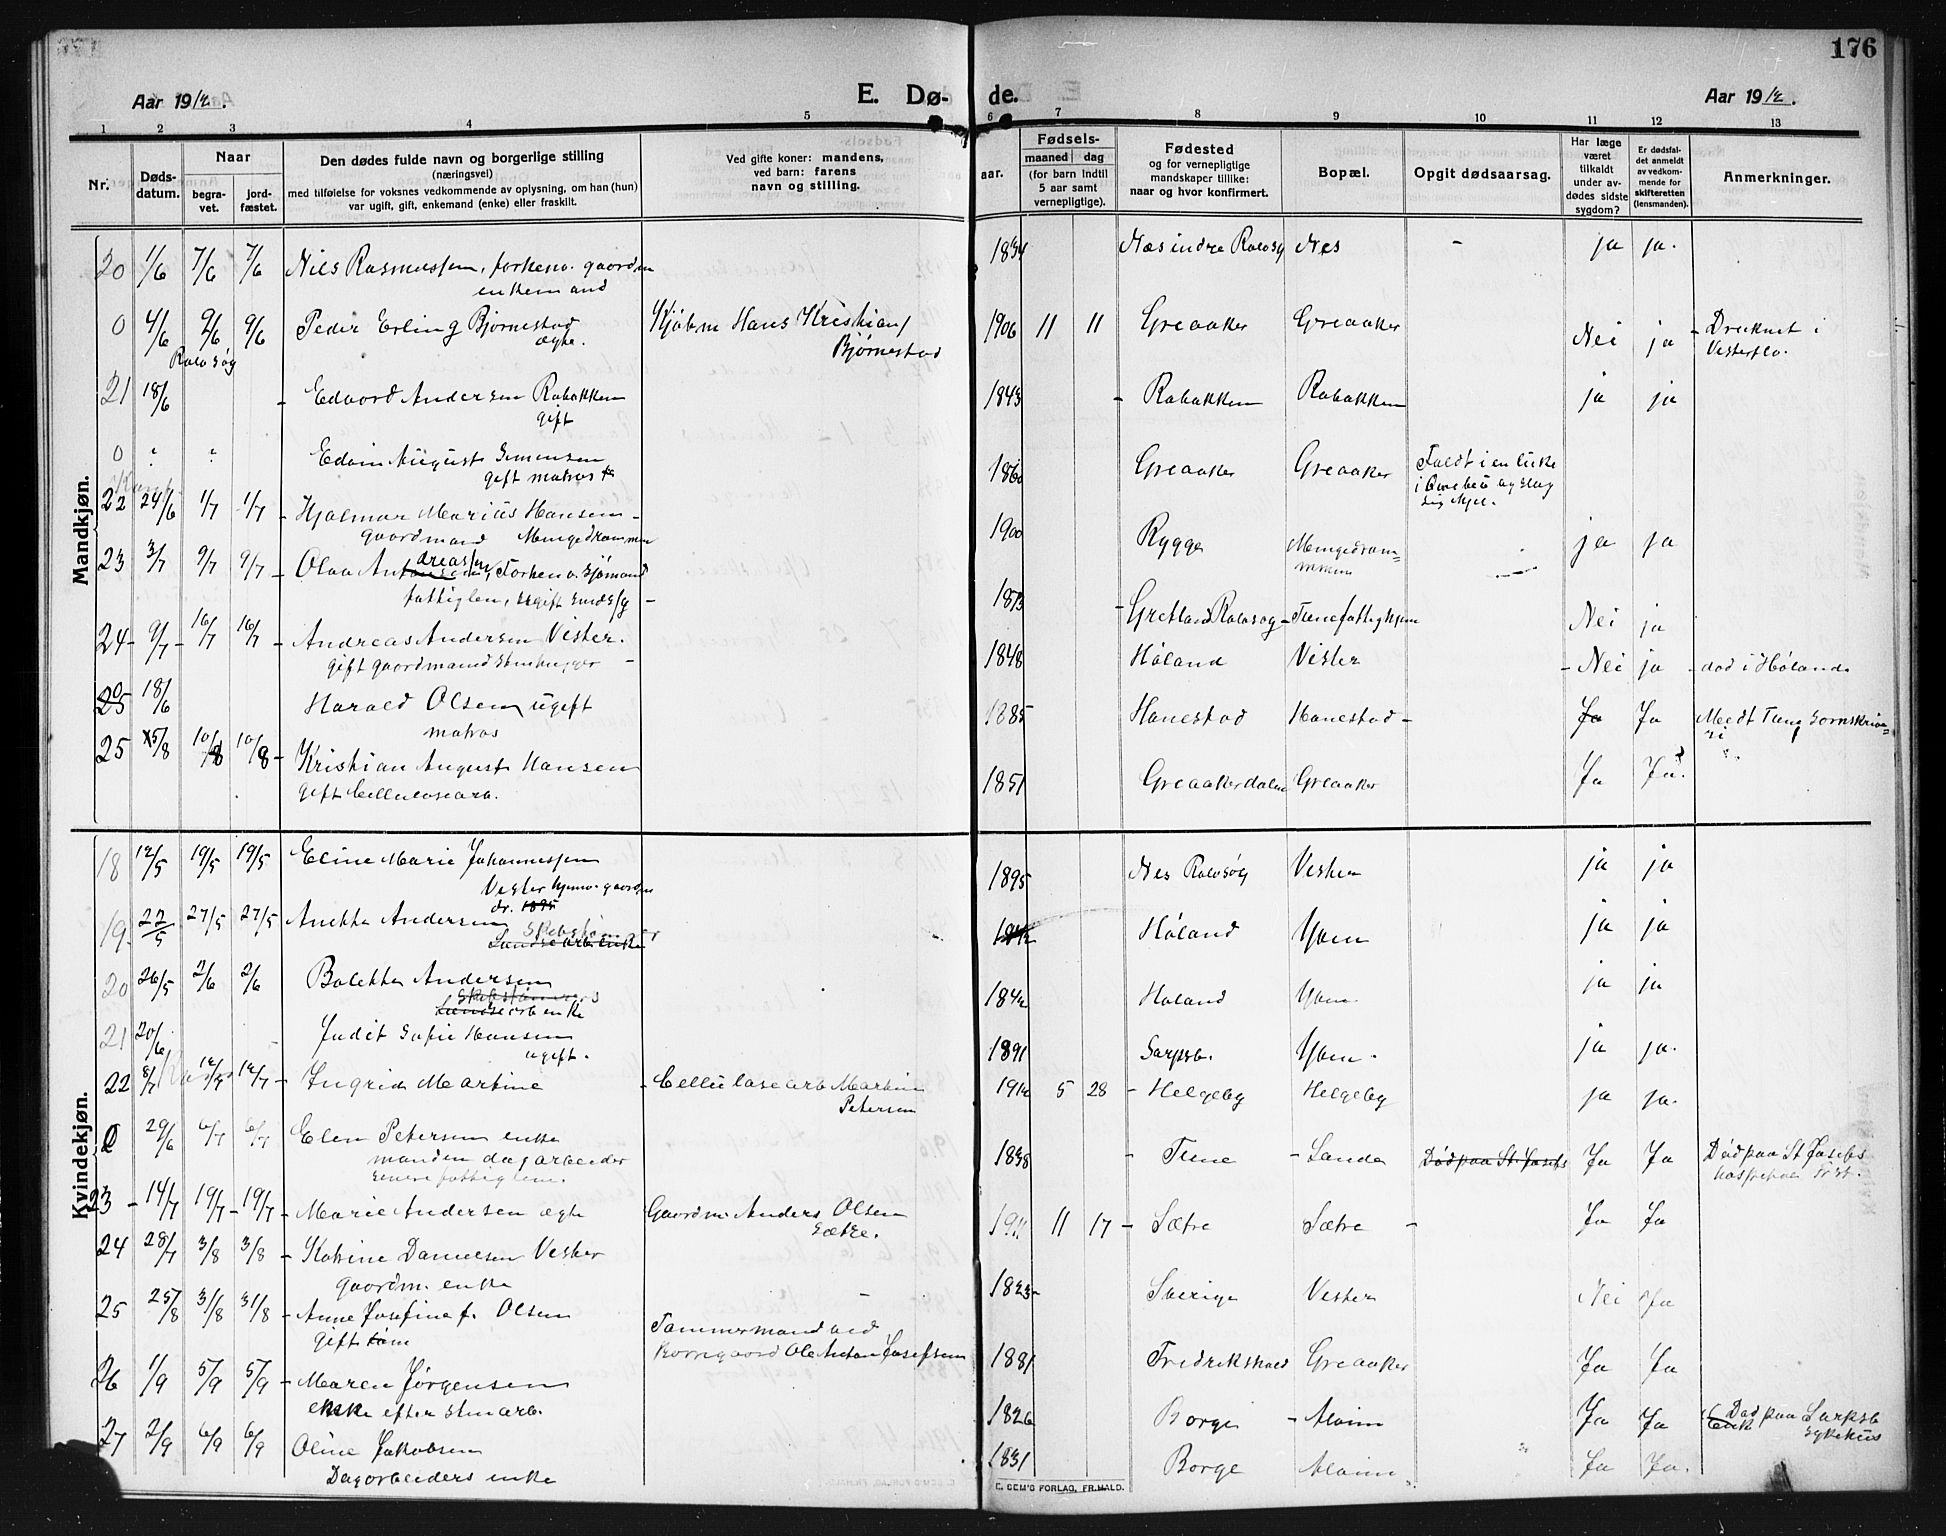 176
Aar 1912.
E. Dø-
de.
Aar 1912.
1 2 3 4 5 6 7 8 9 10 11 12 13
Nr.
Døds-
datum.
Naar
begra-
vet.
jord-
fæstet.
Den dødes fulde navn og borgerlige stilling
(næringsvei)
med tilføielse for voksnes vedkommende av oplysning, om han (hun)
var ugift, gift, enkemand (enke) eller fraskilt.
Ved gifte koner: mandens,
ved barn: farens
navn og stilling.
Fødsels-
aar.
maaned
dag
(for barn indtil
5 aar samt
vernepligtige).
Fødested
og for vernepligtige
mandskaper tillike:
naar og hvor konfirmert.
Bopæl.
Opgit dødsaarsag.
Har læge
været
tilkaldt
under av-
dødes sidste
sygdom?
Er dødsfal-
det anmeldt
av vedkom-
mende for
skifteretten
(lensmanden).
Anmerkninger.
Mandkjøn.
20 1/6 7/6 7/6 Niels Rasmussen, forhenv. gaardm 1834 Næs indre Rolvsøy Nes - ja ja.
enkemand
0 4/6 9/6 9/6 Peder Erling Bjørnestad Kjøbm Hans Kristian 1906 11 11 Greaaker Greaaker Nei ja - Druknet i
Rolvsøy ægte. Bjørnestad Vesterelv.
21 18/6 - Edvard Andersen Rabakken 1843 - Rabakken Rabakken ja ja
gift
0 " " Edvin August Simensen 1860 Greaaker Greaaker Faldt i en luke
gift matros og slog
sig ihjel.
22 24/6 1/7 1/7 - Hjalmar Marius Hansen - 1900 Rygge Mingedram- ja ja
gaardmand Mingedrammen mmen
23 3/7 9/7 9/7 - Olaa Antonsen, Forhenv. Sjømand 1873 - Rolvsøy - Tunefattighjem Nei ja
dreassen
fattiglem, ugift
24 - 9/7 - 16/7 16/7 - Andreas Andersen Vister. 1848 Høland Vister - Nei ja - død i Høland
gift gaardmand Stenhugger -
25 0 18/6 Harald Olsen, ugift 1885 Hanestad Hanestad - Ja Ja Medt Tune Sorenskrive-
matros ri
25 5/8 10/8 10/8 - Kristian August Hansen 1851 Greaakerdalen Greaaker Ja Ja.
gift Cellulosearb.
Kvindekjøn.
18 12/5 19/5 19/5 Eline Marie Johannessen 1895 Nes Rolvsøy Vister ja ja
Vister hjemv. gaardm
dr. 1895
19. 22/5 27/5 27/5 Anekka Andersen 1842 Høland Yven ja ja
Landsearb enke
20 26/5 2/6 2/6 Bolekka Andersen 1842 Høland Yven ja ja
Skibstømmers
Landsearb enke
21 20/6 Judit Sofie Hansen 1891 Sarpsb. Yven. ja ja.
ugift.
22 8/7 12/7 12/7 - Ingrid Martine - Cellulosearb Martin 1912 5 28 - Helgeby Helgeby ja ja.
Petersen
0 29/6 6/7 6/7 Elen Petersen enke 1838 Tune - Sande Død paa St. Josefs Ja Ja Død paa St Josefs
manden dagarbeider hospital Frst.
senere fattiglem.
23 - 14/7 19/7 - 19/7 - Marie Andersen ægte Gaardm. Anders Olsen 1911 11 17 - Sætre Sætre - Ja Ja
Sætre.
24 28/7 3/8 3/8 - Katrine Danielsen Vister 1823 - Sverige Vister Nei Ja
gaardm. enke
25 25/8 31/8 31/8 - Anne Josefina f. Olsen Tømmermand ved 1881 Fredrikshald Greaaker Ja Ja
gift Borregaard Ole Anton Josefsen
26 1/9 5/9 5/9 - Maren Jørgensen 1826 Borge - Alvim Ja Ja Død paa Sarpsb
enke efter stenarb. Sykehus
27 2/9 6/9 6/9 Oline Jakobsen 1831 Borge Alvim Ja Ja.
Dagarbeiders enke
E. SEM'S FORLAG, FR.HALD.